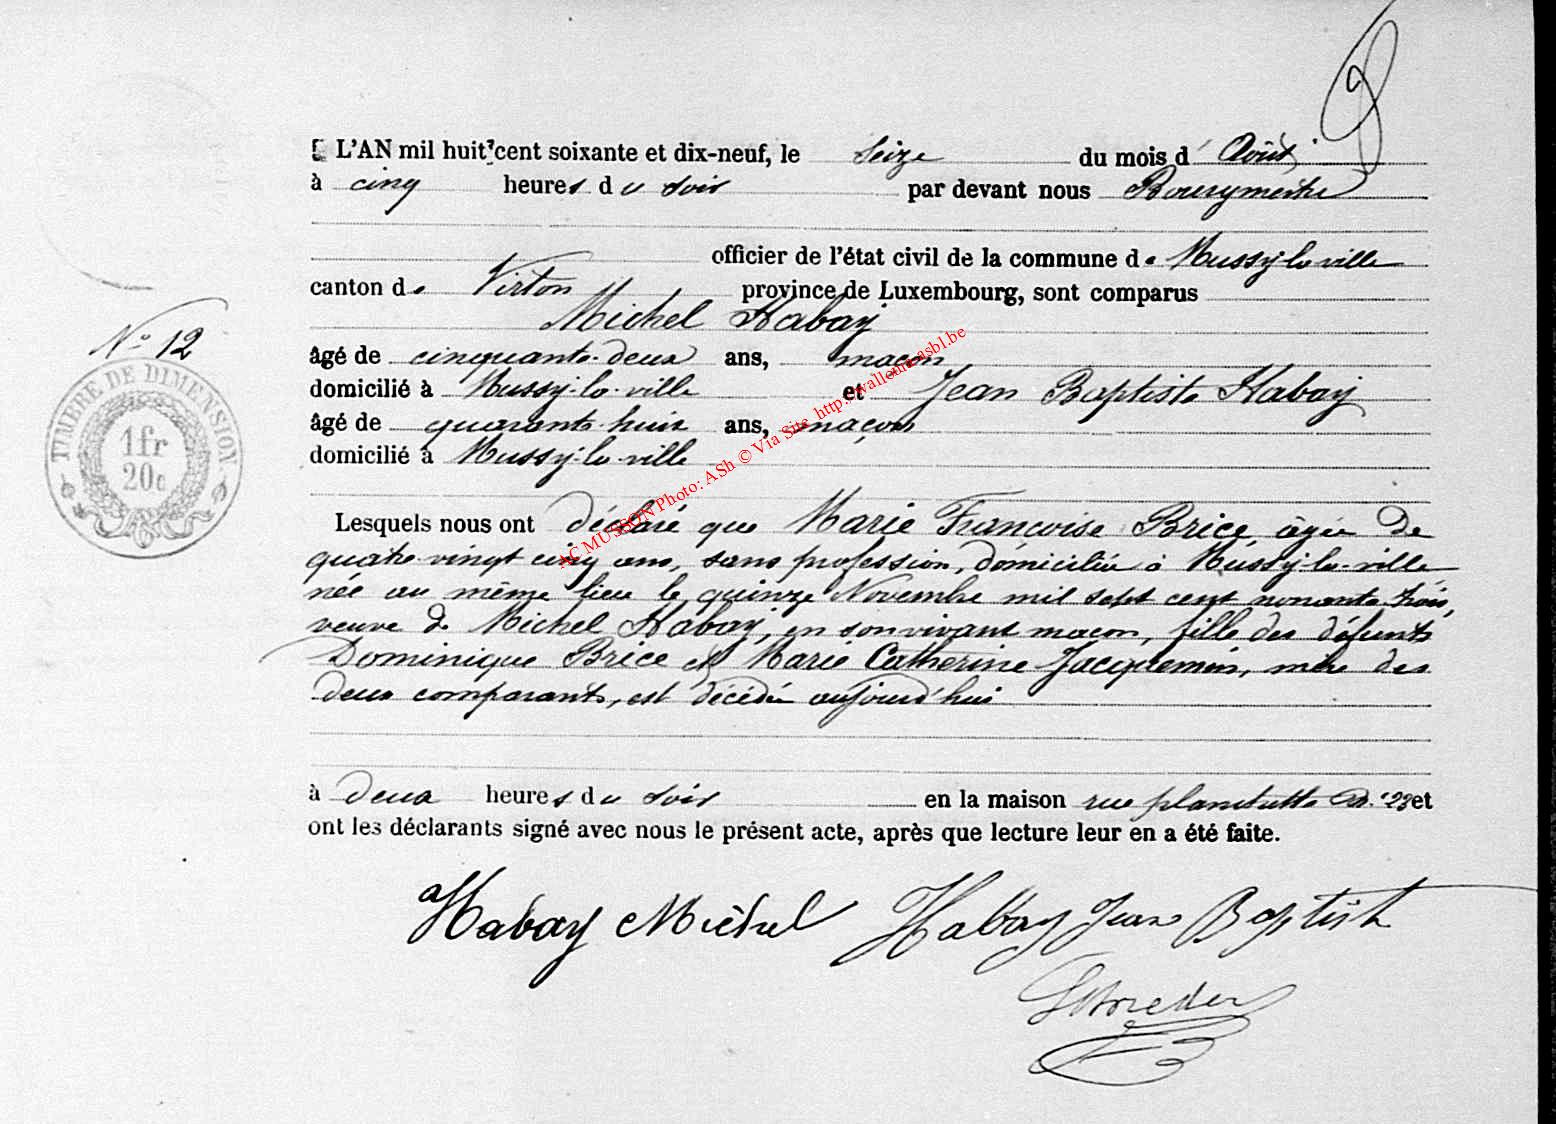 L'AN mil huit cent soixante et dix-neuf, le Seize du mois d' Août
à cinq heures du soir par devant nous Bourgmestre
officier de l'état civil de la commune de Mussy-la-ville
canton de Virton province de Luxembourg, sont comparus
Michel Habay
N° 12
âgé de cinquante-deux ans, maçon
domicilié à Mussy-la-ville et Jean Baptiste Habay
âgé de quarante-huit ans, maçon
domicilié à Mussy-la-ville
TIMBRE DE DIMENSION
1fr
20c
AC MUSSON Photo: ASh © Via Site http://walleure.asbl.be
Lesquels nous ont déclaré que Marie Françoise Brice, âgée de
quatre-vingt cinq ans, sans profession, domiciliée à Mussy-la-ville
née au même lieu le quinze Novembre mil sept cent nonante-trois,
veuve de Michel Habay, en son vivant maçon, fille des défunts
Dominique Brice et Marie Catherine Jacquemin, mère des
deux comparants, est décédée aujourd'hui
à deux heures du soir en la maison rue et
ont les déclarants signé avec nous le présent acte, après que lecture leur en a été faite.
Habay Michel Habay Jean Baptist